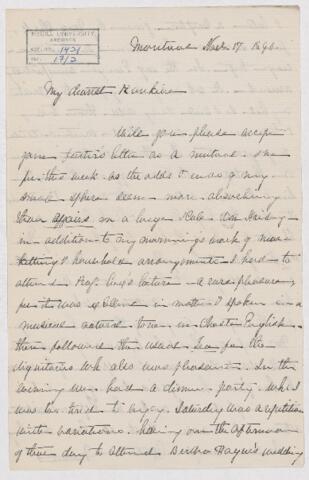 McGILL UNIVERSITY
ARCHIVES
ACC. NO. 1421
REF. 1712
Montreal Nov 17 1896
My dearest
Will you please accept
your sister's letter as a mutual one
for this week. As the odds & ends of my
small sphere seem more absorbing
than affairs on a larger scale. On Friday
in addition to my mornings work of
& household arrangements I had to
attend Prof. lecture – a rare pleasure
for it was excellent in matter & spoken in a
musical natural tone in chaste English –
then followed the usual tea for the
dignitaries wh. also was pleasant. In the
evening we had a dinner party wh. I
was too tired to enjoy. Saturday was a repetition
with variations. having on the afternoon
of that day to attend Bertha wedding